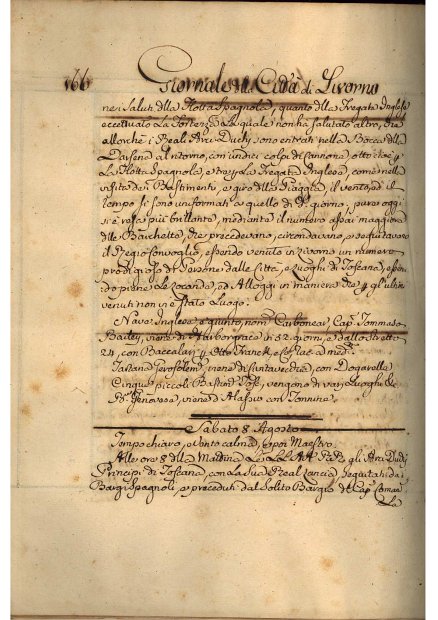 166 Giornale della Città di Livorno
ne i Saluti della Flotta Spagnola, quanto della Fregata Inglese
eccettuato La Fortezza La quale non ha salutato altro, che
allorchè i Reali Arci Duchi sono entrati nella Bocca della
Darsena al ritorno, con undici colpi di Cannone,
La Flotta Spagnola, e La Fregata Inglese, come nella
visita dei Bastimenti, e giro della Spiaggia, il vento, ed il
tempo si sono uniformati a quello di giorno; pure oggi
si è resa più brillante, mediante il numero assai maggiore
delle Barchette, che precedevano, circondavano, e seguitavano
il Regio Convoglio, essendo venuto in Livorno un numero
prodigioso di Persone dalle Città, e Luoghi di Toscana, essen-
do piene Le Locande, ed Alloggi in maniera che gl'ultimi
venuti non vi è stato Luogo.
Nave Inglese, è giunto, nom. Carbonear, Cap. Tommaso
Bailey, viene di Harborgrace in 52 giorni, e dallo Stretto
24, con Baccalari Otto Franck, e Comp.
Tartana Gerosolem. viene di Civitavecchia, con Dogarella
Cinque piccoli Bastim. Tosc. vengono di varj Luoghi
Genovese, viene d'Alassio con Tonnina.
Sabato 8 Agosto
Tempo chiaro, e vento calma, e poi Maestro.
Alle ore 8 della Mattina Le LL. AA. RR. gli Arci Duchi
Principi di Toscana, con La Sua Real seguitati da
Bargi Spagnoli, e preceduti dal Solito Bargio del Cap.
La